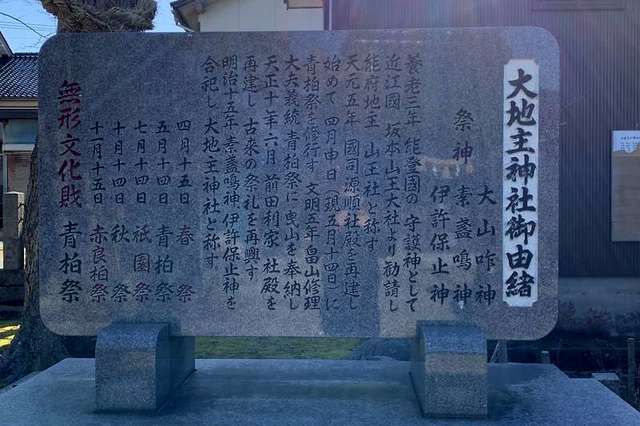 大地主神社御由緒
祭神 大山咋神
素盞鳴神
伊許保止神
養老三年 能登國の守護神として
近江國 坂本山王大社より勧請し
能府地主 山王社と称す
天元五年 國司源順社殿を再建し
始めて 四月申日(現五月十四日)に
青柏祭を修行す 文明五年 畠山修理
大夫義統 青柏祭に曳山を奉納し
天正十年六月 前田利家 社殿を
再建し 古来の祭礼を再興す
明治十五年 素盞鳴神 伊許保止神を
合祀し 大地主神社と称す
四月十五日 春祭
五月十四日 青柏祭
七月十四日 祇園祭
十月十四日 秋祭
十月十五日 赤良柏祭
無形文化財 青柏祭